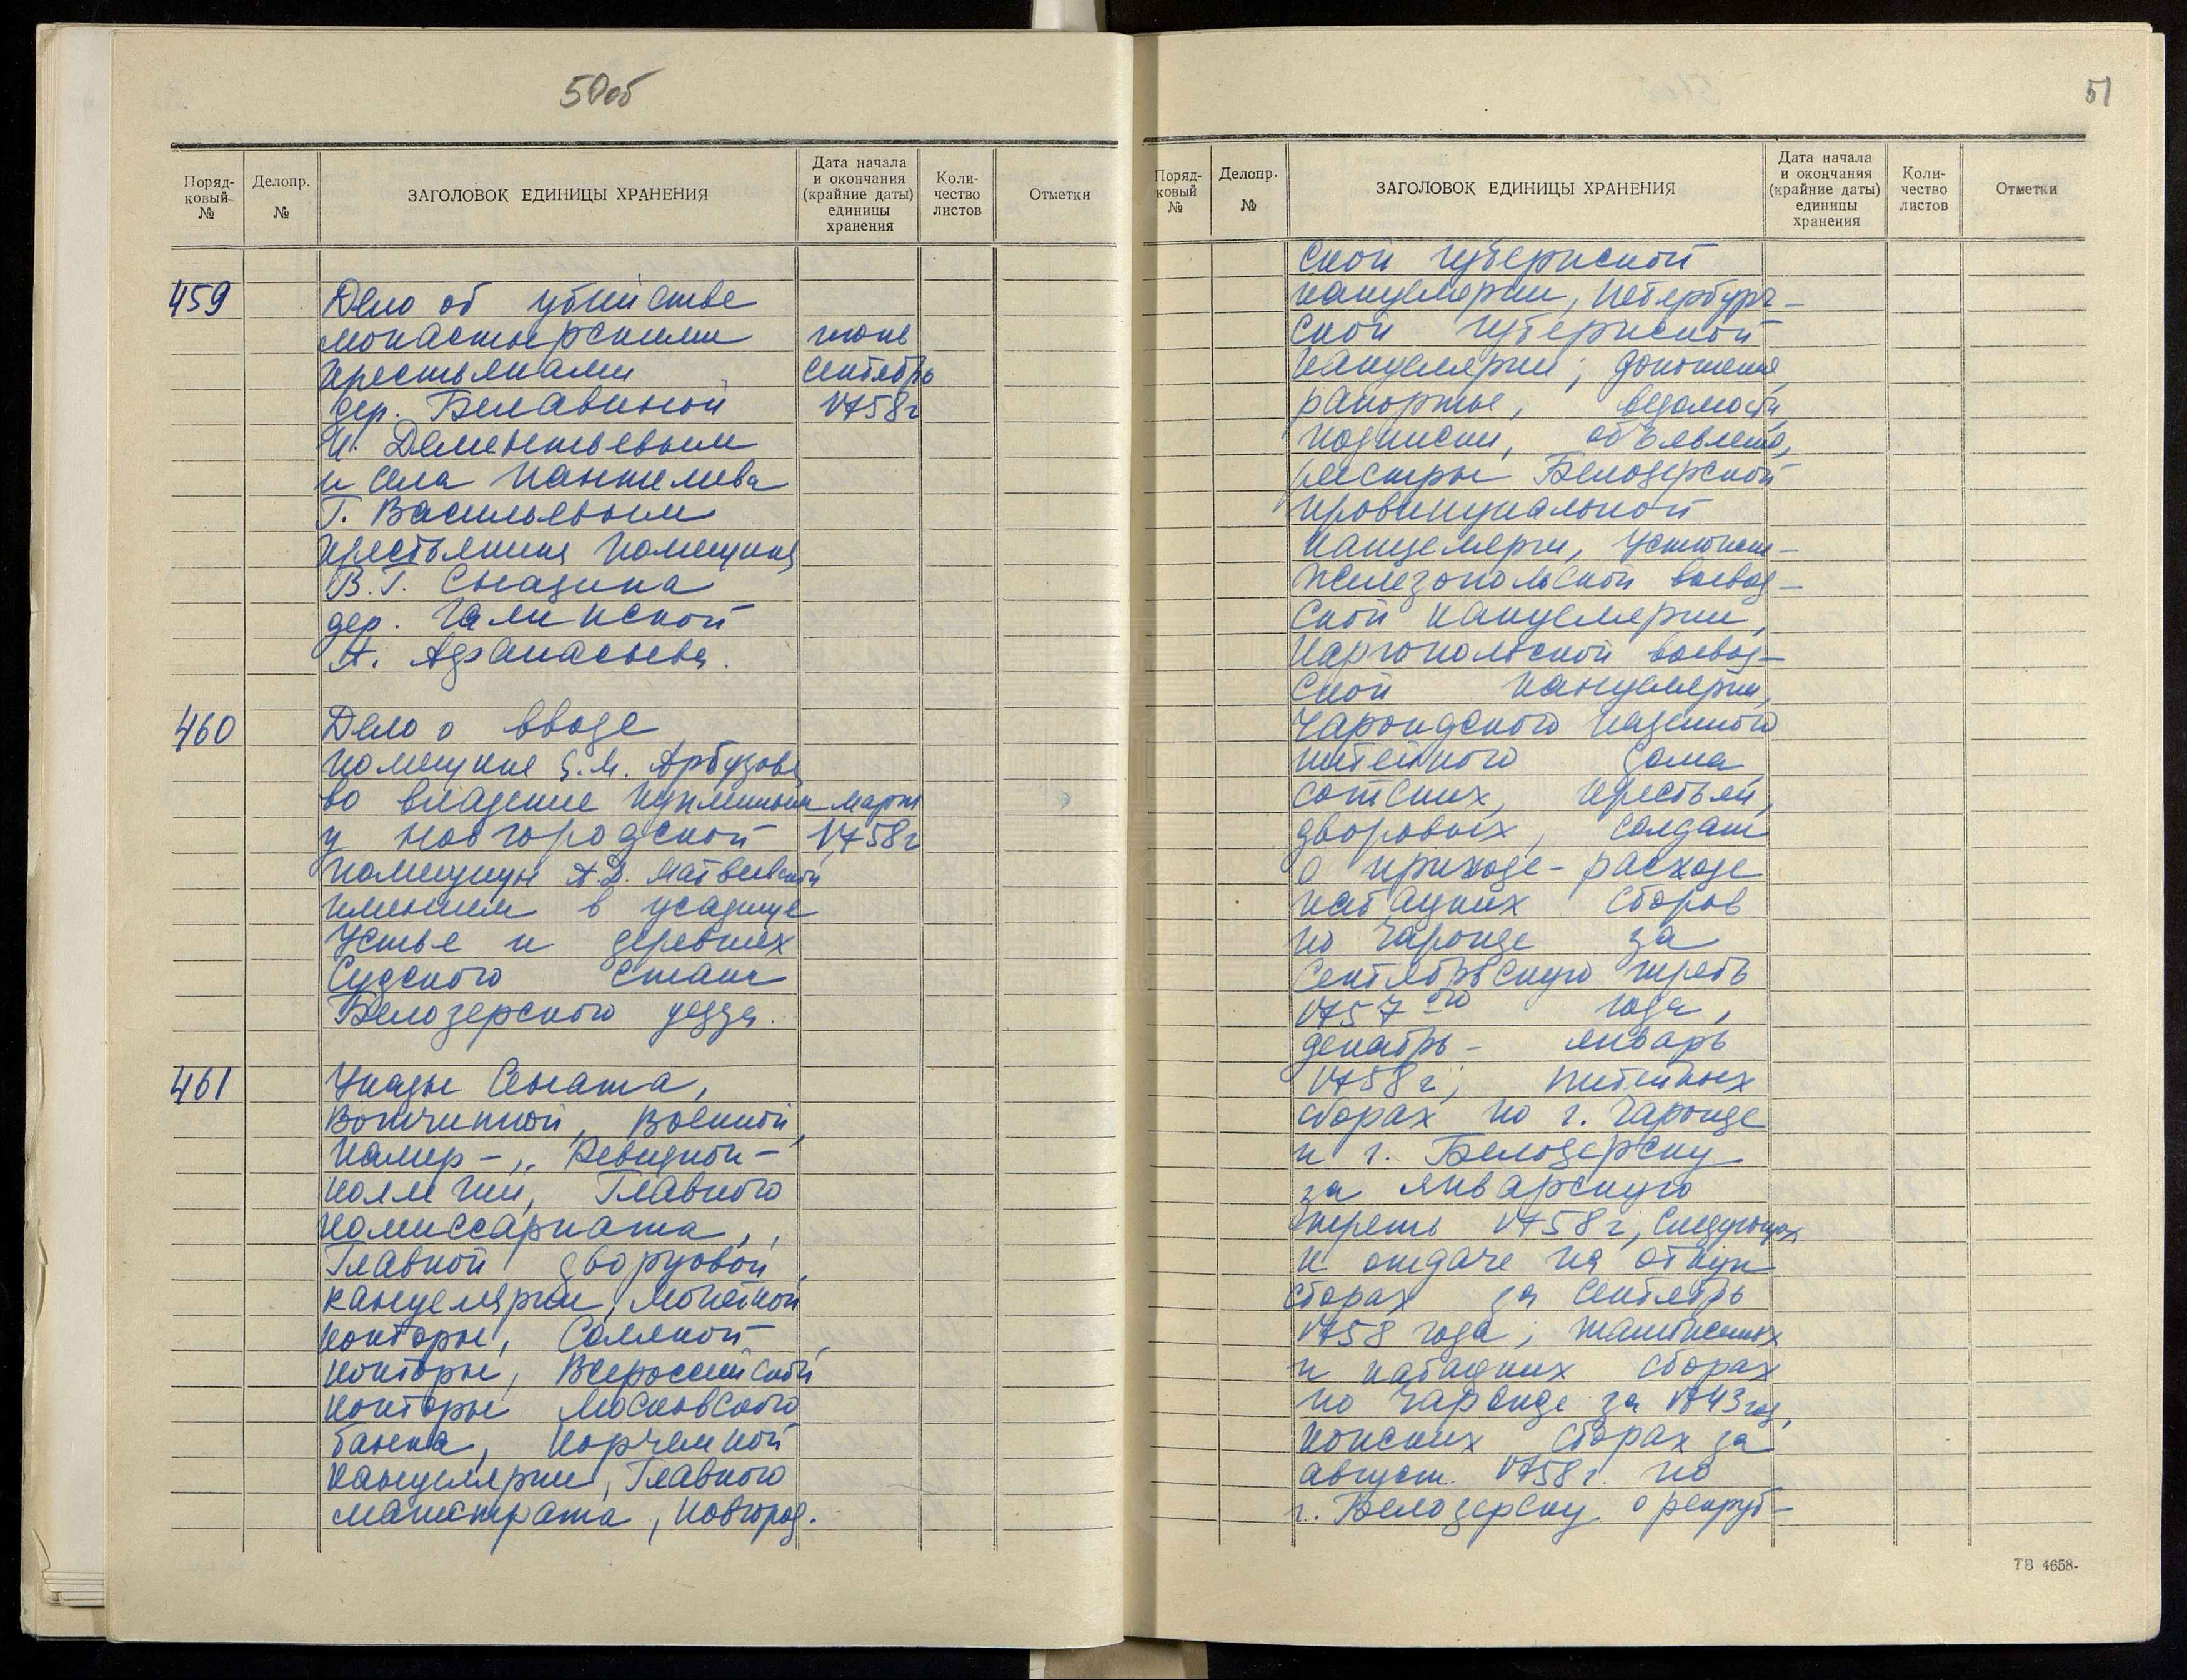 50об
Поряд-
ковый
№
Делопр.
№
ЗАГОЛОВОК ЕДИНИЦЫ ХРАНЕНИЯ
Дата начала
и окончания
(крайние даты)
единицы
хранения
Коли-
чество
листов
Отметки
459
Дело об убийстве
монастырскими июнь
крестьянами сентябрь
дер. Белавиной 1758г
И. Дементьевым
и села Пантелева
Г. Васильевым
крестьянина помещика
В.Г. Сназина
дер. Галинской
А. Афанасьева.
460 Дело о вводе
помещика Я.М. Арбузова
во владение купленным март
у новгородской 1758г
помещицы А.Д. Матвеевской
имением в усадище
Устье и деревнях
Судского стана
Белозерского уезда.
461 Указы Сената,
Вотчинной, Военной,
Камер-, Ревизион-
коллегии, Главного
комиссариата,
Главной дворцовой
канцелярии, Монетной
конторы, Соляной
конторы, Всероссийской
конторы Московского
банка, Корчемной
канцелярии, Главного
магистрата, Новгород.
51
Поряд-
ковый
№
Делопр.
№
ЗАГОЛОВОК ЕДИНИЦЫ ХРАНЕНИЯ
Дата начала
и окончания
(крайние даты)
единицы
хранения
Коли-
чество
листов
Отметки
ской губернской
канцелярии, Петербург-
ской губернской
канцелярии; доношения,
рапорты, ведомости,
подписки, объявления,
реестры Белозерской
провинциальной
канцелярии, Устюжно-
железопольской воевод-
ской канцелярии,
Каргопольской воевод-
ской канцелярии,
Чарондского казенного
питейного дома
сотских, крестьян,
дворовых, солдат
о приходе-расходе
кабацких сборов
по Чаронде за
сентябрьскую треть
1757го года,
декабрь - январь
1758 г; питейных
сборах по г. Чаронде
и г. Белозерску
за январскую
треть 1758 г, следующих
к отдаче на откуп
сборах за сентябрь
1758 года; таможенных
и кабацких сборах
по Чаронде за 1743 год,
конских сборах за
август 1758 г. по
г. Белозерску о рекрут-
ТВ 4658-